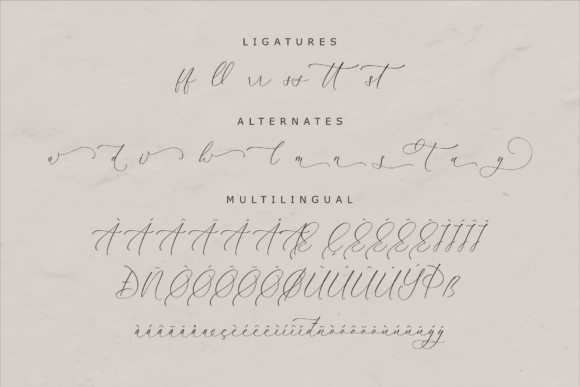 LIGATURES
ff ll rr ss tt st
ALTERNATES
w d v h l m n s t u y
MULTILINGUAL
À Á Â Ã Ä Å Æ Ç È É Ê Ë Ì Í Î Ï
Ð Ñ Ò Ó Ô Õ Ö Ø Ù Ú Û Ü Ý Þ ß
à á â ã ä å æ ç è é ê ë ì í î ï ð ñ ò ó ô õ ö ù ú û ü ý ÿ